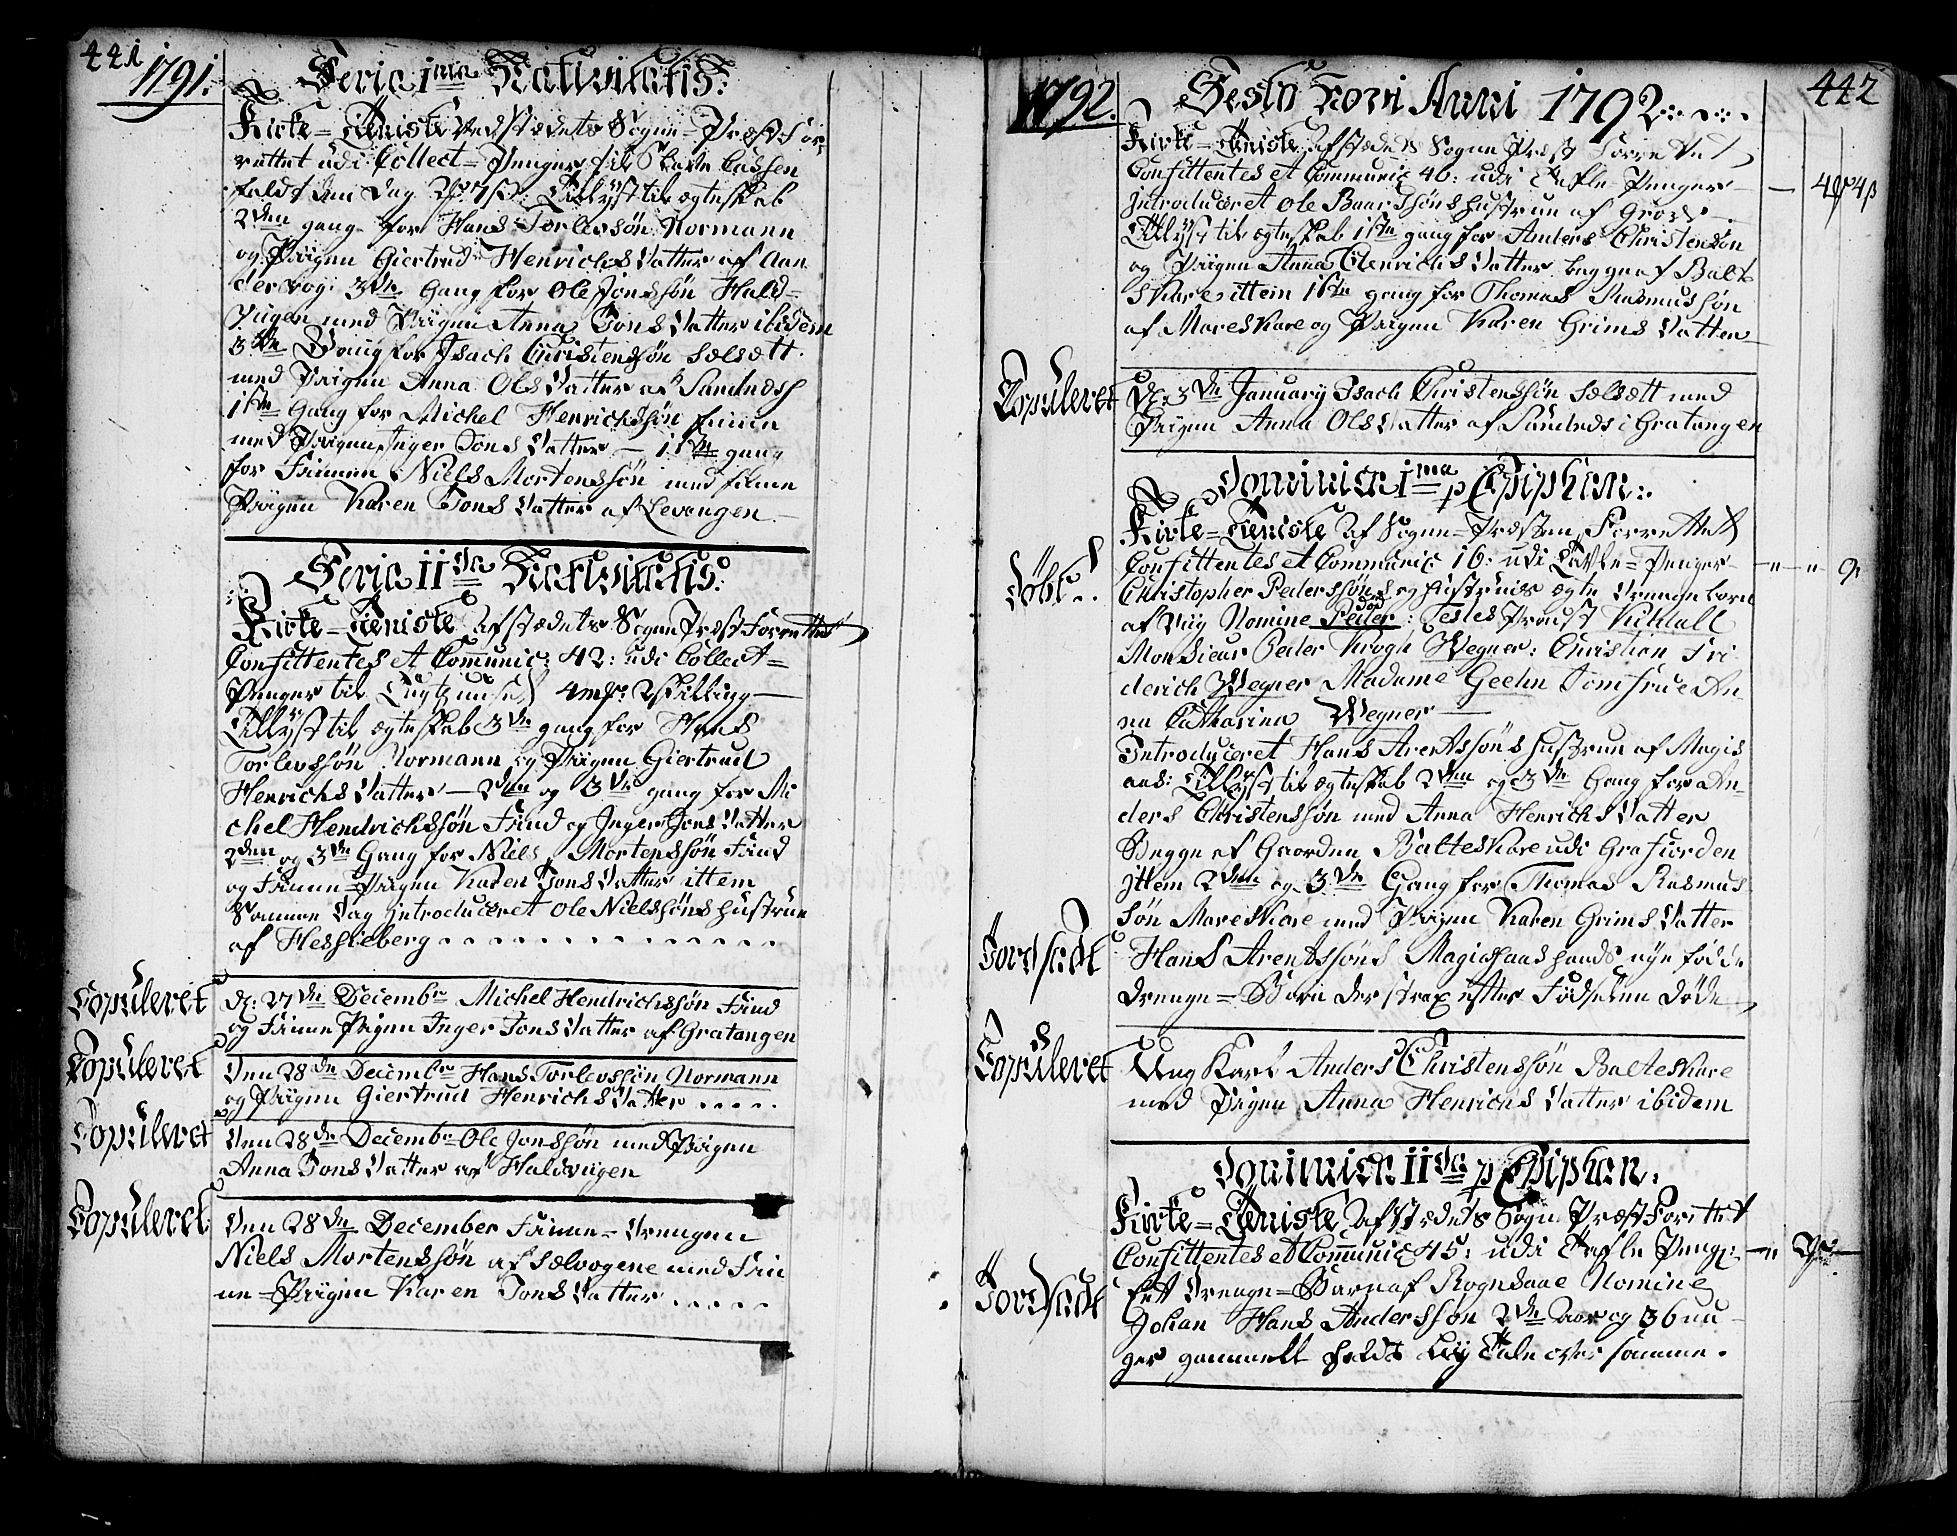 441
1791.
Feria 1ma Nativitatis:
Kirke-Tieniste ved stædets Sogne-Præst for-
rettet udi Collect-Penger til Slave Cassen
faldt den Dag
Tillyst til ægteskab
2den gang for Hans Torlevssøn Normann
og Piigen Giertrud Henrichs Datter af Aan
dervog: 3de Gang for Ole Jonssøn Hald-
viigen med Piigen Anna Jons Datter ibidem
3de Gang for Isach Christenssøn Sælsætt
med Piigen Anna Ols Datter af Samlnds
1ste Gang for Michel Henrichssøn finn
med Piigen Inger Jons Datter - 1ste gang
for Finnen Niels Mortenssøn med finne
Piigen Karen Jons Datter af Levangen
Feria IIda Nativitatis:
Kirke-Tieniste af stædets Sogne Præst Forrettet
Confittentes et Communic: 42: udi Collect-
Penger til Tugthuuset 4 mk: 2 skilling
Tillyst til ægteskab 3de gang for Hans
Torlevssøn Normann og Piigen Giertrud
Henrichs Datter - 2den og 3de gang for Mi
chel Hendrichssøn Find og Inger Jons Datter
2den og 3de Gang for Niels Mortenssøn Find
og Finne-Piigen Karen Jons Datter ittem
Samme Dag introduceret Ole Nielssøns hustrue
af Hessieberg
Copuleret
d: 27de Decembr Michel Hendrichssøn Find
og Finne Piigen Inger Jons Datter af Gratangen
Copuleret
Den 28de Decembr Hans Torlevssøn Normann
og Piigen Giertrud Henrichs Datter
Copuleret
Den 28de Decembr Ole Jonssøn med Piigen
Anna Jons Datter af Haldviigen
Copuleret
Den 28de December Finne-Drengen
Niels Mortenssøn af Sælvogene med Fin
ne-Piigen Karen Jons Datter
442
1792.
Festo Novi Anni 1792
Kirke-Tieniste af stædets Sogne Præst Forrettet
Confittentes et Communic 46: udi Tafle-Penger
introduceret Ole Baarssøns hustrue af Grov
Tillyst til ægteskab 1ste gang for Anders Christensøn
og Piigen Anna Henrichs Datter begge af Balte
skare ittem 1ste gang for Thomas Rasmussøn
af Mareskare og Piigen Karen Grims Datter
Copuleret
d: 3de January Isach Christenssøn Sælsætt med
Piigen Anna Ols Datter af Samlnds i Gratangen
Dominica 1ma p Epiphan:
Kirke-Tieniste af Sogne-Præsten Forrettet
Confittentes et Communic 16: udi Tavle-Penger
Døbt
Christopher Pederssøns og hustrues ægte Drenge barn
død
af Viig Nomine Peder: Testes Proust Kildall
Monsieur Peder Krogh Wegner: Christian Fri
derich Wegner Madame Geelm Jomfrue An
na Catharina Wegner
Introduceret Hans Arentssøns hustrue af Magis
aas: Tillyst til ægteskab 2den og 3de Gang for An-
ders Christenssøn med Anna Henrichs Datter
Begge af Gaarden Balteskare udi Grafiorden
ittem 2den og 3de Gang for Thomas Rasmus
søn Mareskare med Piigen Karen Grims Datter
Jordfæstet
Hans Arentssøns Magisaas hands nye fødde
Drenge-Barn der strax efter Fødselen døde
Copuleret
Ung Karl Anders Christenssøn Balteskare
med Piigen Anna Henrichs Datter ibidem
Dominica IIda p Epiphan.
Kirke-Tieniste af stædets Sogne Præst Forettet
Confittentes et Comunic 45: udi Tafle Peng:
Jordfæstet
Eet Drenge-Barn af Rognsaae Nomine
Johan Hans Anderssøn 2de aar og 36 uu-
ger gammelt holdt Liig Tale over samme.